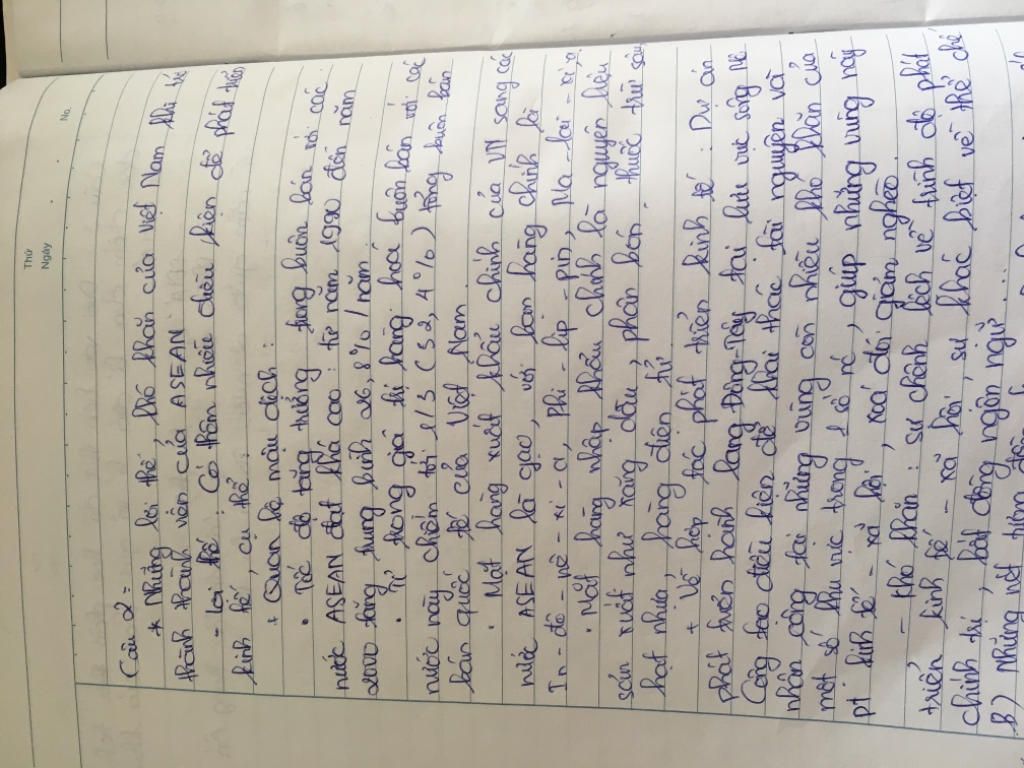 Thứ
Ngày
No.
Câu 2:
* Những lợi thế, khó khăn của Việt Nam khi trở
thành thành viên của ASEAN
- Lợi thế: Có thêm nhiều điều kiện để phát triển
kinh tế, cụ thể
+ Quan hệ mậu dịch:
• Tốc độ tăng trưởng trong buôn bán với các
nước ASEAN đạt khá cao: từ năm 1990 đến năm
2000 tăng trung bình 26,8% / năm
• Tỉ trọng giá trị hàng hoá buôn bán với các
nước này chiếm tới 1/3 (32,4%) tổng buôn bán
bán quốc tế của Việt Nam
• Mặt hàng xuất khẩu chính của VN sang các
nước ASEAN là gạo, với bạn hàng chính là
In-đô-nê-xi-a, Phi-líp-pin, Ma-lai-xi-a
• Mặt hàng nhập khẩu chính là nguyên liệu
sản xuất như xăng dầu, phân bón, thuốc trừ sâu
hạt nhựa, hàng điện tử
+ Về hợp tác phát triển kinh tế: Dự án
phát triển hành lang Đông-Tây tại lưu vực sông Mê
Công tạo điều kiện để khai thác tài nguyên và
nhân công tại những vùng còn nhiều khó khăn của
một số khu vực trong 1 số nc, giúp những vùng này
pt kinh tế - xã hội, xoá đói giảm nghèo
- Khó khăn: sự chênh lệch về trình độ phát
triển kinh tế - xã hội, sự khác biệt về thể chế
chính trị, bất đồng ngôn ngữ...
B) Những nét tương đồng